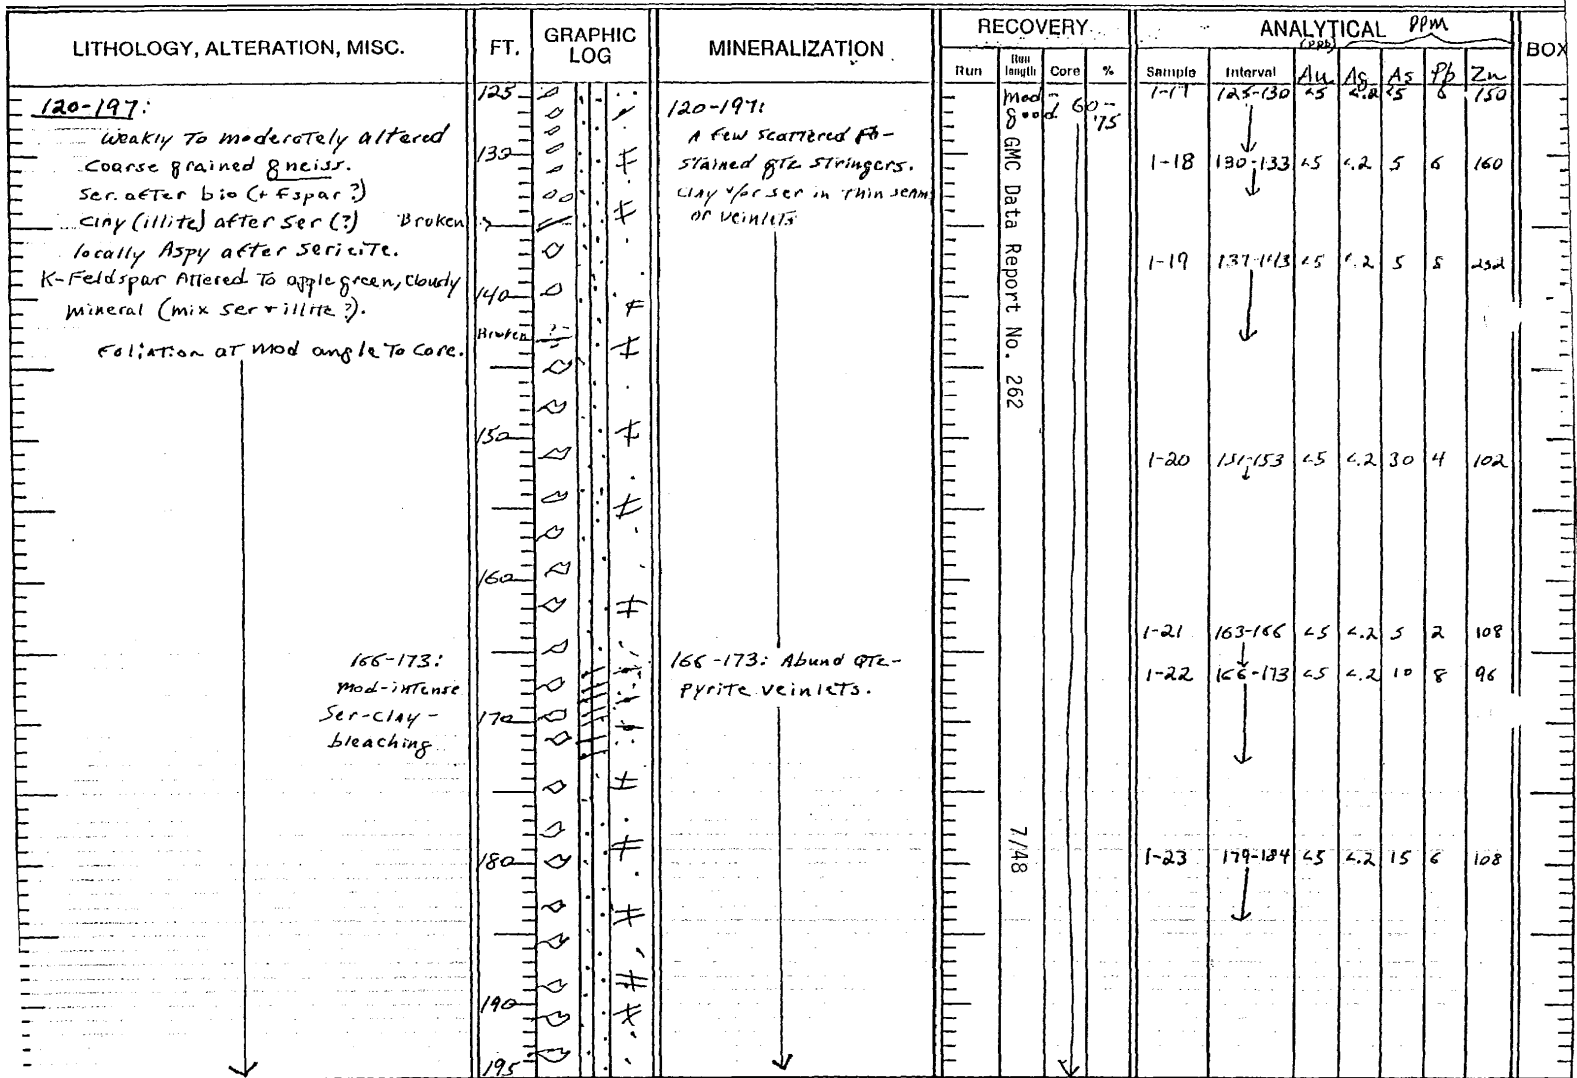 LITHOLOGY, ALTERATION, MISC.
FT.
GRAPHIC
LOG
MINERALIZATION
RECOVERY
Run
Run
length
Core
%
ANALYTICAL ppm
(ppb)
Sample Interval Au Ag As Pb Zn
BOX
120-197:
Weakly To moderately altered
Coarse grained gneiss.
Ser. after bio (+ Fspar ?)
Clay (illite) after Ser (?) Broken
locally Aspy after Sericite.
K-Feldspar Altered To apple green, cloudy
mineral (mix Ser + illite ?).
Foliation at mod angle To Core.
166-173:
mod-intense
Ser-clay-
bleaching
125
130
140
Broken
150
160
170
180
190
195
120-197:
A few scattered
stained qtz stringers.
Clay &/or ser in thin seam
or veinlets
166-173: Abund QTZ-
Pyrite veinlets.
mod-
good 60-
75
GMC Data Report No. 262
7/48
1-17 125-130 <5 <.2 <5 150
1-18 130-133 <5 <.2 5 6 160
1-19 <5 <.2 5 232
1-20 151-153 <5 <.2 30 4 102
1-21 163-166 <5 <.2 5 2 108
1-22 166-173 <5 <.2 10 8 96
1-23 179-184 <5 <.2 15 6 108